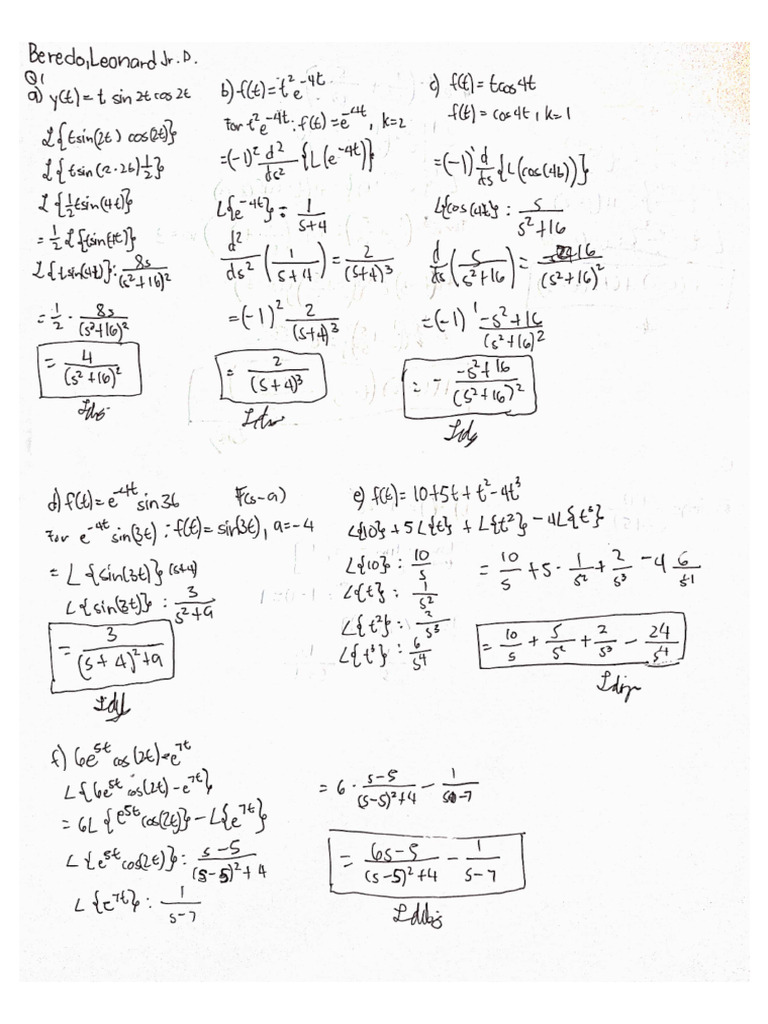 Beredo, Leonard Jr. D.
Q1
a) y(t) = t sin 2t cos 2t
L{tsin(2t) cos(2t)}
L{tsin(2·2t)½}
L{½tsin(4t)}
= ½L{tsin(4t)}
L{tsin(4t)}: 8s/(s²+16)²
= ½ · 8s/(s²+16)²
= 4/(s²+16)²
b) f(t) = t²e^-4t
For t²e^-4t : f(t) = e^-4t, k=2
= (-1)² d²/ds² {L(e^-4t)}
L{e^-4t} : 1/(s+4)
d²/ds² (1/(s+4)) = 2/(s+4)³
= (-1)² 2/(s+4)³
= 2/(s+4)³
c) f(t) = tcos4t
f(t) = cos4t, k=1
= (-1)¹ d/ds {L(cos(4t))}
L{cos(4t)} : s/(s²+16)
d/ds (s/(s²+16)) = -s²+16/(s²+16)²
= (-1)¹ -s²+16/(s²+16)²
= - -s²+16/(s²+16)²
d) f(t) = e^-4t sin3t F(s-a)
For e^-4t sin(3t) : f(t) = sin(3t), a=-4
= L{sin(3t)} (s+4)
L{sin(3t)} : 3/(s²+9)
= 3/((s+4)²+9)
e) f(t) = 10+5t+t²-4t³
L{10} + 5L{t} + L{t²} - 4L{t³}
L{10} : 10/s
L{t} : 1/s²
L{t²} : 2/s³
L{t³} : 6/s⁴
= 10/s + 5 · 1/s² + 2/s³ - 4 6/s⁴
= 10/s + 5/s² + 2/s³ - 24/s⁴
f) 6e^5t cos(2t) - e^7t
L{6e^5t cos(2t) - e^7t}
= 6L{e^5t cos(2t)} - L{e^7t}
L{e^5t cos(2t)} : s-5/((s-5)²+4)
L{e^7t} : 1/(s-7)
= 6 · s-5/((s-5)²+4) - 1/(s-7)
= 6s-5/((s-5)²+4) - 1/(s-7)